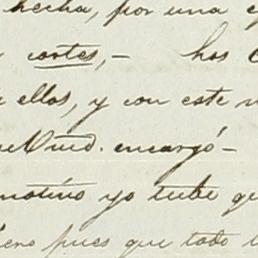 hecha, por una
cortes, — los
ellos, y con este
Vmd. encargó—
motivo yo tube
pues que todo